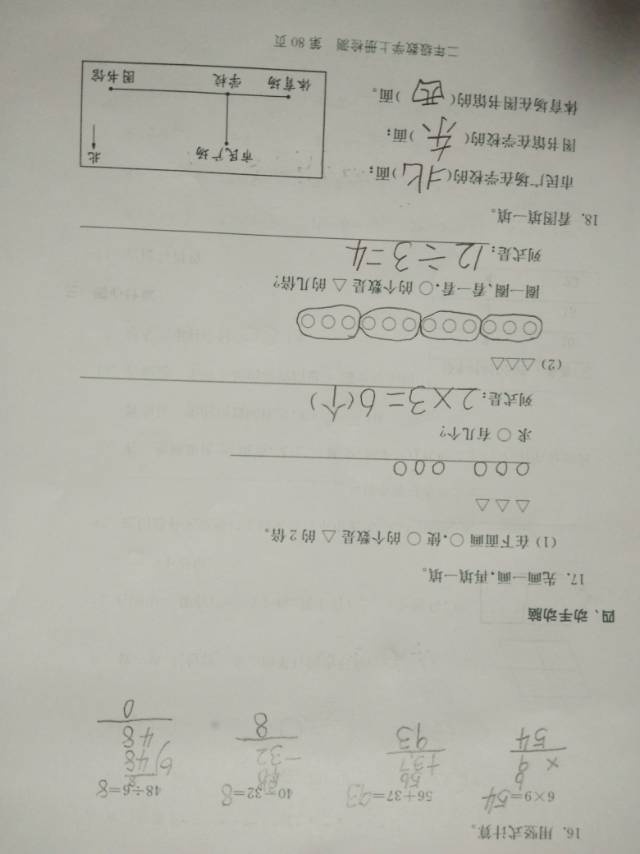 16. 用竖式计算。
6×9=54 56+37=93 40-32=8 48÷6=8
6 56 40 8
× 9 +37 -32 6)48
54 93 8 48
0
四、动手动脑
17. 先画一画,再填一填。
(1) 在下面画○,使○的个数是△的2倍。
△△△
○○○ ○○○
求○有几个?
列式是:2×3=6(个)
(2) △△△
○○○○○○○○○○○○
圈一圈、看一看,○的个数是△的几倍?
列式是:12÷3=4
18. 看图填一填。
市民广场在学校的(北)面;
图书馆在学校的(东)面;
体育场在图书馆的(西)面。
市民广场 北
体育场 学校 图书馆
二年级数学上册检测 第80页